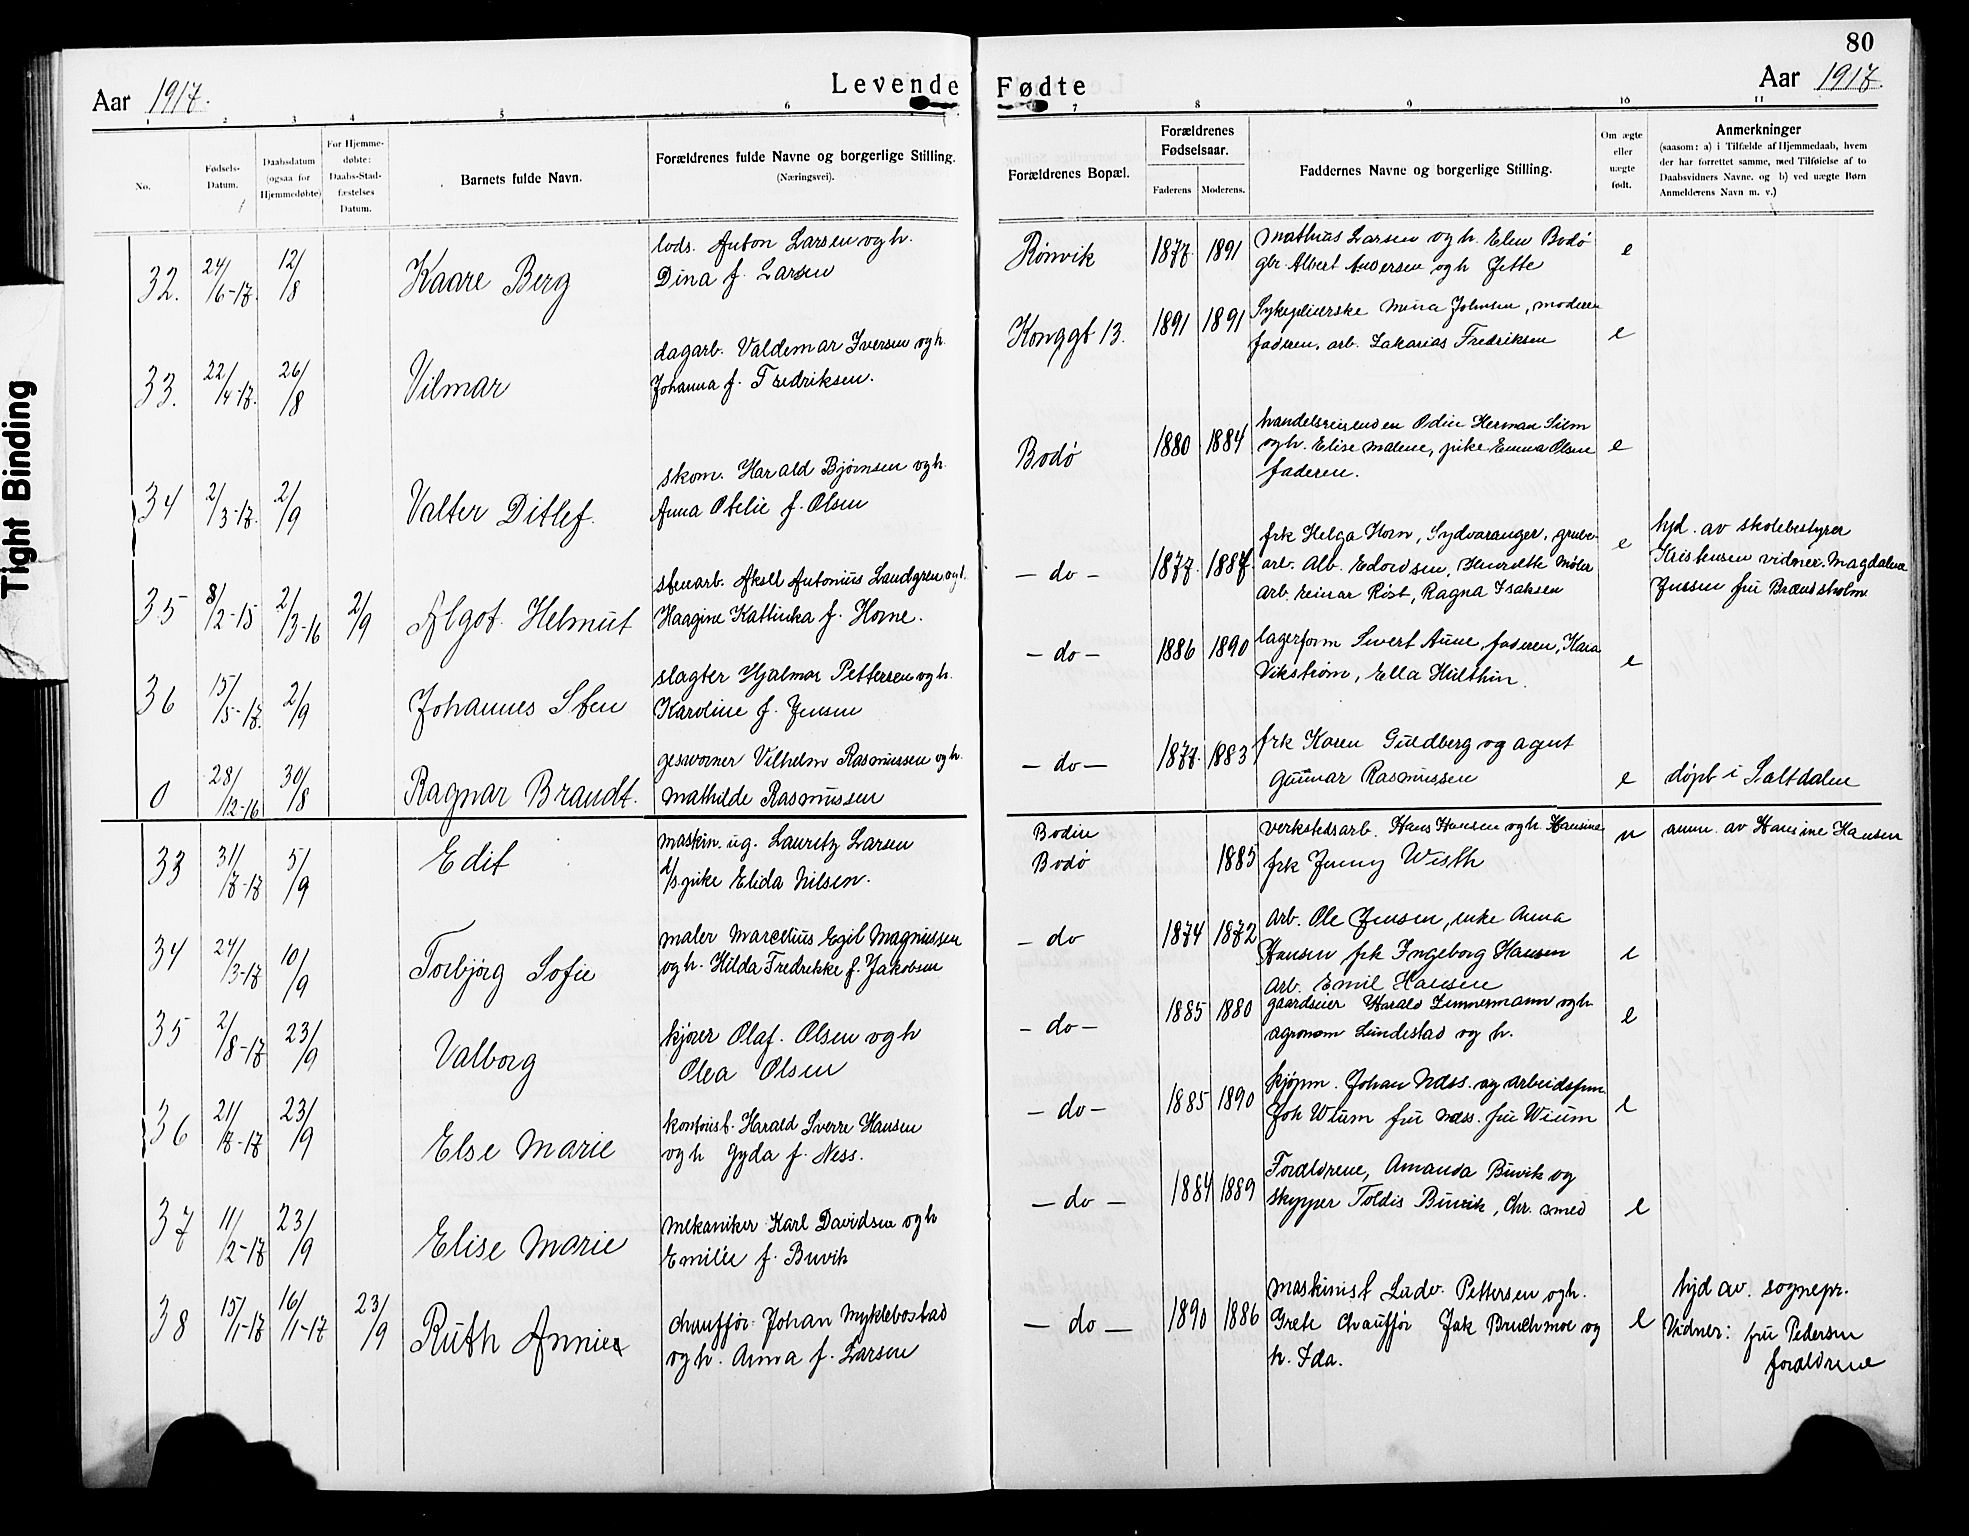 80
Levende Fødte
Aar 1917.
Aar 1917.
1 2 3 4 5 6 7 8 9 10 11
No.
Fødsels-
Datum.
Daabsdatum
(ogsaa for
Hjemmedøbte)
For Hjemme-
døbte:
Daabs-Stad-
fæstelses
Datum.
Barnets fulde Navn.
Forældrenes fulde Navne og borgerlige Stilling.
(Næringsvei).
Forældrenes Bopæl.
Forældrenes
Fødselsaar.
Faderens. Moderens.
Faddernes Navne og borgerlige Stilling.
Om ægte
eller
uægte
født.
Anmerkninger
(saasom: a) i Tilfælde af Hjemmedaab, hvem
der har forrettet samme, med Tilføielse af to
Daabsvidners Navne, og b) ved uægte Børn
Anmelderens Navn m. v.)
32. 24/6-17. 12/8 Kaare Berg
lods. Anton Larsen og h.
Dina f. Larsen
Rønvik 1877 1891
Mathias Larsen og h. Elen Bodø
gbr. Albert Andersen og h Jette
e
33. 22/4-17. 26/8 Vilmar
dagarb. Valdemar Iversen og h.
Johanna f. Fredriksen.
Konggt 13. 1891 1891
Sykepleierske Mina Johnsen, moderen
faderen, arb. Zakarias Fredriksen
e
34 2/3-17. 2/9 Valter Ditlef.
skom. Harald Bjørnsen og h.
Anna Otelie f. Olsen
Bodø 1880 1884
handelsreisenden Odin Herman Siem
og h. Elise Malene, pike Emma Olsen
faderen.
e
35 8/2-15 2/3-16 2/9 Algot Helmut
stenarb. Aksel Antonius Landgren og h.
Haagine Kattinka f. Horne.
- do - 1877. 1887.
frk Helga Horn, Sydvaranger, grube-
arb. Alb. Edvardsen, Henriette Møler
arb. Einar Røst, Ragna Isaksen
e
hjd. av skolebestyrer
Kristensen vidner. Magdalena
Jenssen fru Brændsholm
36 15/5-17. 2/9 Johannes Sten
slagter Hjalmar Pettersen og h.
Karoline f. Jensen
- do - 1886 1890
lagerform Sivert Aune, faderen, Kara
Vikstrøm, Ella Hulthin.
e
0 28/12-16 30/8 Ragnar Brandt.
gesvorner Vilhelm Rasmussen og h.
Mathilde Rasmussen
- do - 1877. 1883
frk Karen Guldberg og agent
Gunnar Rasmussen
e døpt i Saltdalen
33 31/7-17 5/9 Edit
maskin. ug. Lauritz Larsen
d/s. pike Elida Nilsen.
Bodin
Bodø 1885
verkstedsarb. Hans Hansen og h. Hansine
frk Jenny Wisth
u anm. av Hansine Hansen
34 24/3-17 10/9 Torbjørg Sofie
maler Marcelius Egil Magnussen
og h. Hilda Fredrikke f. Jakobsen
- do 1874 1872
Arb. Ole Jensen, enke Anna
Hansen frk Ingeborg Hansen
Arb. Emil Hansen
e
35 2/8-17 23/9 Valborg
kjører Olaf. Olsen og h
Olea Olsen
- do - 1885 1880
gaardseier Harald Zimmermann og h
agronom Lundestad og h.
e
36 21/7-17 23/9 Else Marie
kontorist. Harald Sverre Hansen
og h Gyda f. Ness.
- do - 1885 1890
kjøpm. Johan Næss. og arbeidsfm.
Joh Wium fru Næss. fru Wium
e
37 11/2-17 23/9 Elise Marie
mekaniker Karl Davidsen og h
Emilie f. Buvik
- do - 1884 1889
Forældrene, Amanda Buvik og
skypper Toldis Buvik, Chr. smed
e
38 15/1-17 16/1-17 23/9 Ruth Annie
chauffør. Johan Myklebostad
og h. Anna f. Larsen
- do - 1890 1886
Maskinist Ludv. Pettersen og h.
Grete Chauffør Jak Bruchmoe og
h. Ida.
e
hjd av. sognepr.
Vidner: fru Pedersen
forældrene
Tight Binding